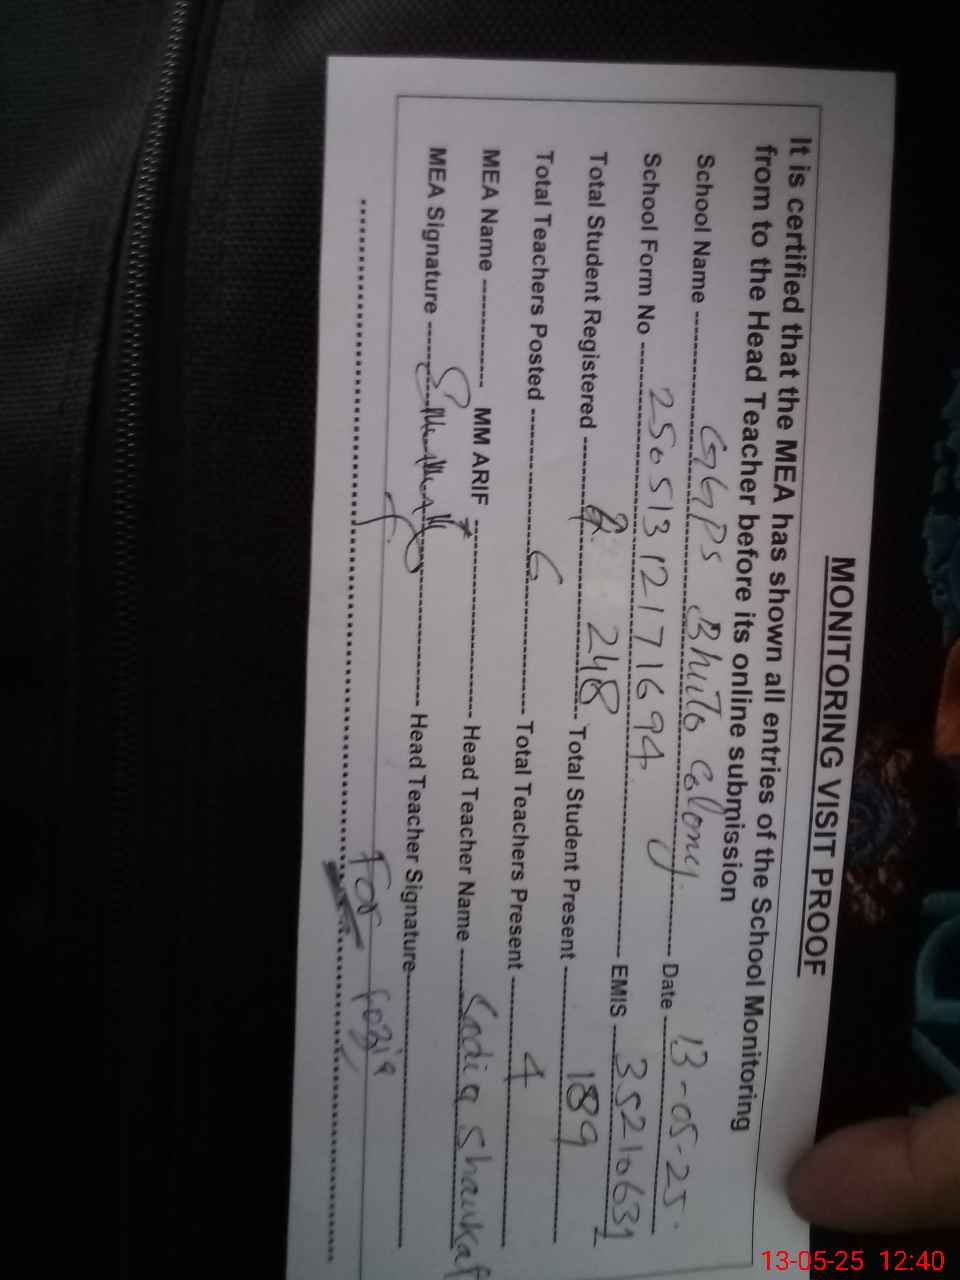 MONITORING VISIT PROOF
It is certified that the MEA has shown all entries of the School Monitoring
from to the Head Teacher before its online submission
School Name GGPS Bhutto Colony. Date 13-05-25.
School Form No 2505131217 1694. EMIS 35210631
Total Student Registered 248 Total Student Present 189
Total Teachers Posted 6 Total Teachers Present 4
MEA Name MM ARIF Head Teacher Name Sadia Shaukat
MEA Signature Head Teacher Signature
For Fozia
13-05-25 12:40